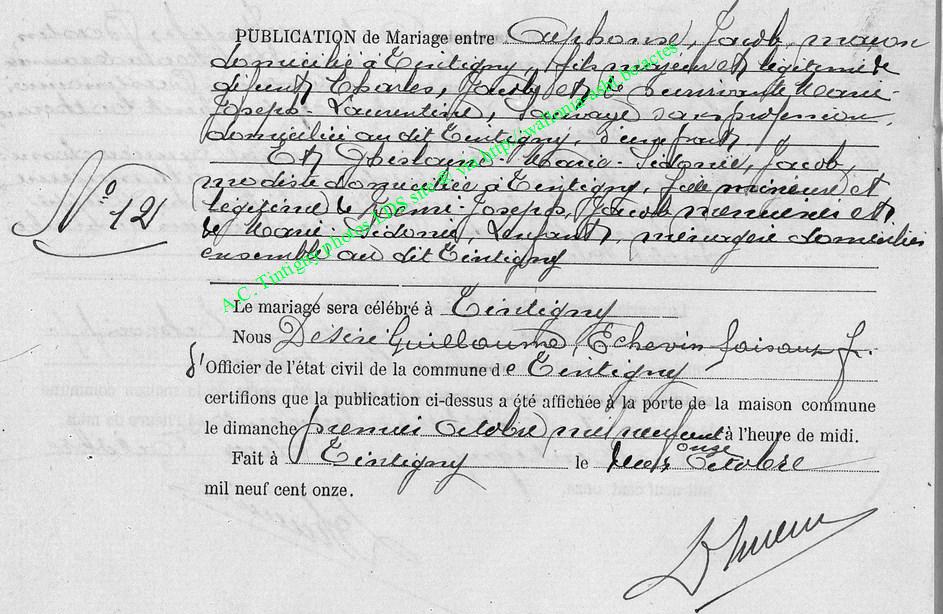 PUBLICATION de Mariage entre Alphonse, Jacob, maçon
domicilié à Tintigny, fils majeur et légitime de
défunt Charles, Jacob, et de survivante Marie-
Joseph Laurentine, sans profession,
domiciliée au dit Tintigny, d'une part.
Et Ghislaine Marie-Sidonie, Jacob,
modiste domiciliée à Tintigny, fille mineure et
légitime de Remi-Joseph, Jacob menuisier et
de Marie-Sidonie, Lenfant, ménagère domiciliés
ensemble au dit Tintigny
N° 12
Le mariage sera célébré à Tintigny
Nous Désiré Guillaume, Echevin faisant f.
d'Officier de l'état civil de la commune de Tintigny
certifions que la publication ci-dessus a été affichée à la porte de la maison commune
le dimanche premier Octobre mil neuf cent onze à l'heure de midi.
Fait à Tintigny le deux Octobre
mil neuf cent onze.
A.C. Tintigny photos LDS site © via http://wallonia-asbl.be/actes